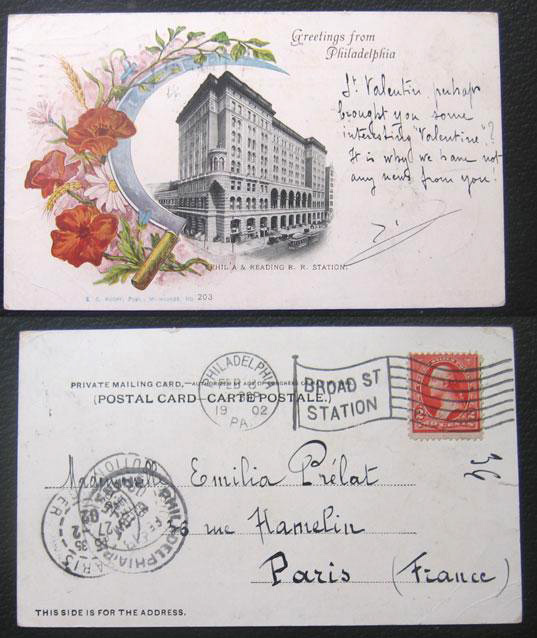 Greetings from
Philadelphia
St Valentin perhaps
brought you some
interesting "Valentine"?
It is why we have not
any news from you!
PHILA & READING R. R. STATION.
203
PRIVATE MAILING CARD,—AUTHORIZED
(POSTAL CARD—CARTE POSTALE.)
PHILADELPHIA
FEB
19 02
PA.
BROAD ST
STATION
2 CENTS
Mademoiselle Emilia Prélat
36 rue Hamelin
Paris (France)
PHILADELPHIA
PARIS
THIS SIDE IS FOR THE ADDRESS.